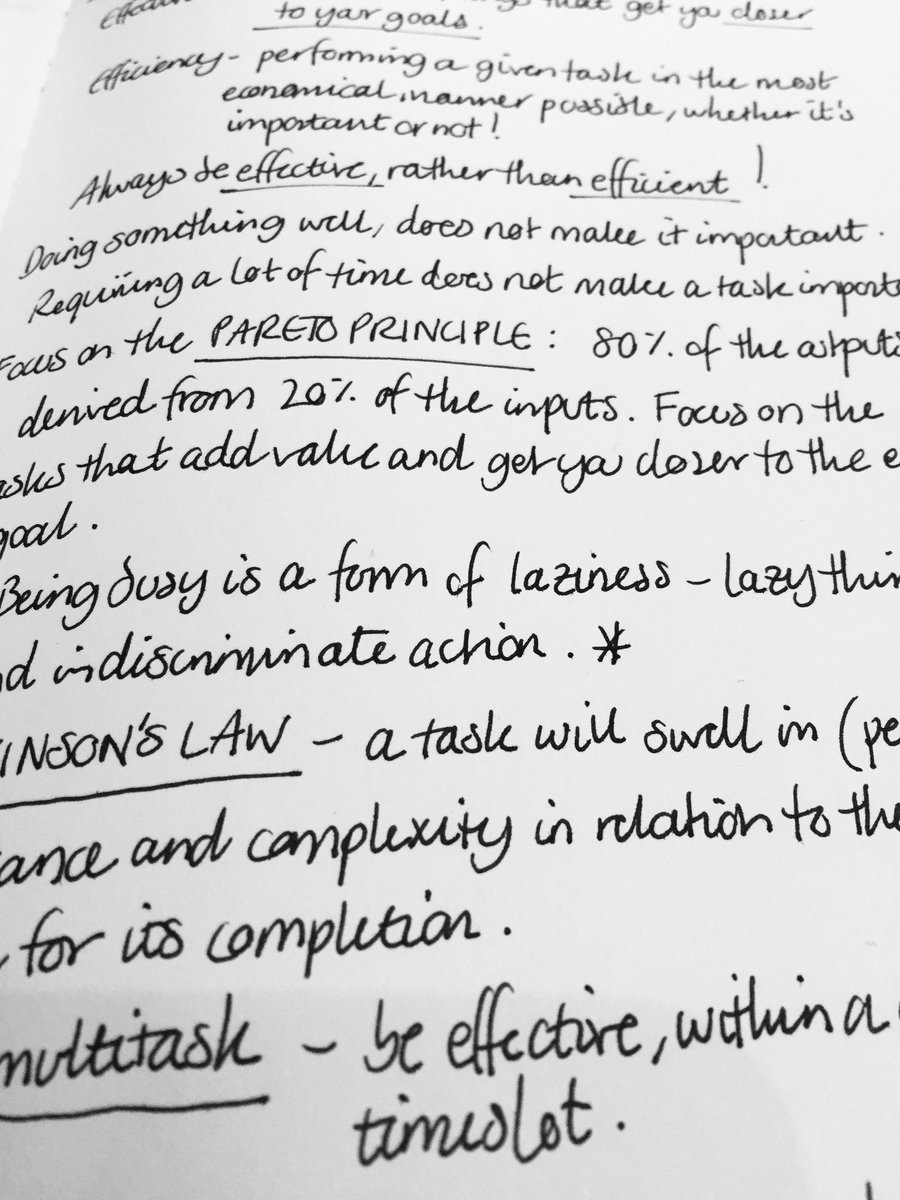 that get you closer
to your goals.
Efficiency - performing a given task in the most
economical manner possible, whether it's
important or not!
Always be effective, rather than efficient!
Doing something well, does not make it important.
Requiring a lot of time does not make a task import
Focus on the PARETO PRINCIPLE: 80% of the outputs
derived from 20% of the inputs. Focus on the
asks that add value and get you closer to the e
goal.
Being busy is a form of laziness - lazy thin
nd indiscriminate action. *
INSON'S LAW - a task will swell in (pe
tance and complexity in relation to the
for its completion.
multitask - be effective, within a
timeslot.